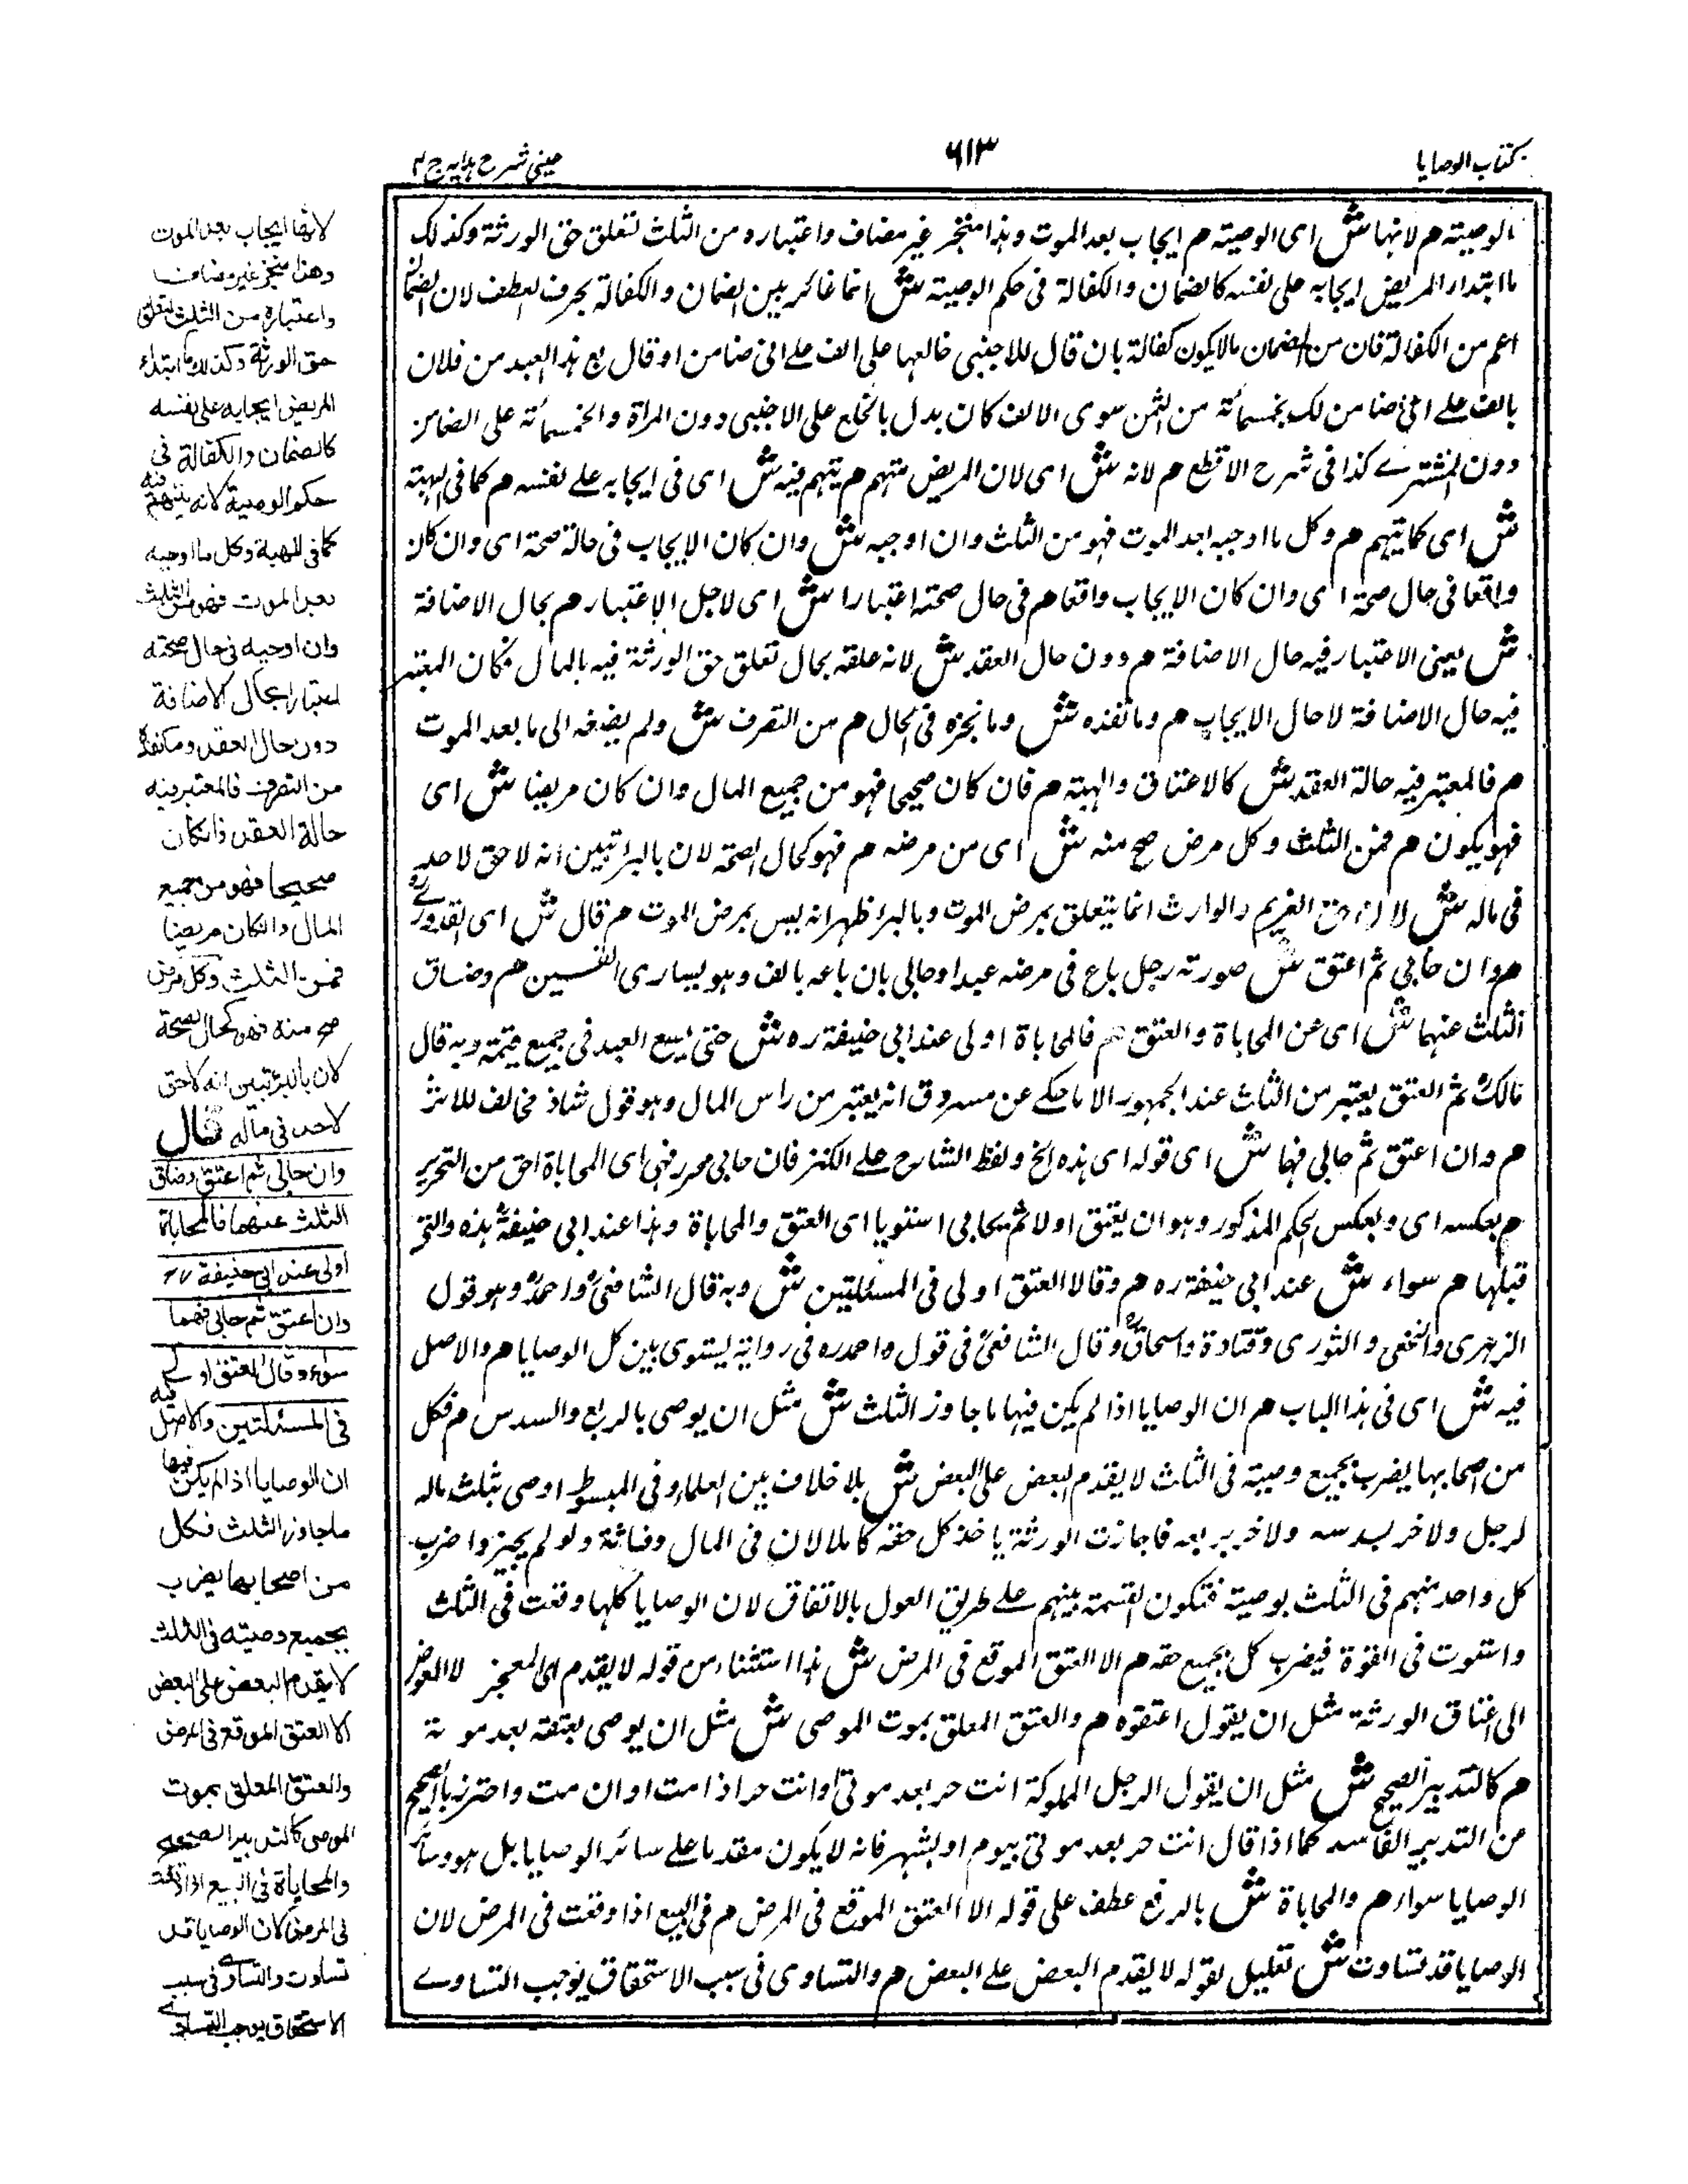 كتاب الوصايا
٦١٣
عينى شرح هدايه ج ٤
الوصية هم لانها ش اى الوصية هم ايجاب بعد الموت وهذا منجز غير مضاف واعتباره من الثلث لتعلق حق الورثة وكذلك
ما ابتدأ المريض ايجابه على نفسه كالضمان والكفالة فى حكم الوصية ش انما غاير بين الضمان والكفالة بحرف العطف لان الضمان
اعم من الكفالة فان من الضمان مالا يكون كفالة بان قال للاجنبى خالعها على الف على انى ضامن او قال بع هذا العبد من فلان
بالف على انى ضامن لك بخمسمائة من الثمن سوى الالف كان بدل بالخلع على الاجنبى دون المراة والخمسمائة على الضامن
دون المشترے كذا فى شرح الاقطع هم لانه ش اى لان المريض متهم هم يتهم فيه ش اى فى ايجابه على نفسه هم كما فى الهبة
ش اى كما يتهم هم وكل ما اوجبه بعد الموت فهو من الثلث وان اوجبه ش وان كان الايجاب فى حالة صحة اى وان كان
واقعا فى حال صحة اى وان كان الايجاب واقعا هم فى حال صحته اعتبارا ش اى لاجل الاعتبار هم بحال الاضافة
ش يعنى الاعتبار فيه حال الاضافة هم دون حال العقد ش لانه علقه بحال تعلق حق الورثة فيه بالمال فكان المعتبر
فيه حال الاضافة لا حال الايجاب هم وما نفذه ش وما نجزه فى الحال هم من التصرف ش ولم يضفه الى ما بعد الموت
هم فالمعتبر فيه حالة العقد ش كالاعتاق والهبة هم فان كان صحيحا فهو من جميع المال وان كان مريضا ش اى
فهو يكون هم فمن الثلث وكل مرض صح منه ش اى من مرضه هم فهو كحال الصحة لان بالبرء تبين انه لا حق لاحد
فى ماله ش لان حق الغريم والوارث انما يتعلق بمرض الموت وبالبرء ظهر انه ليس بمرض الموت هم قال ش اى القدورےرہ
هم وان حابى ثم اعتق ش صورته رجل باع فى مرضه عبدا وحابى بان باعه بالف وهو يساوى الفين هم وضاق
الثلث عنهما ش اى عن المحاباة والعتق هم فالمحاباة اولى عند ابى حنيفة ره ش حتى يبيع العبد فى جميع قيمته وبه قال
مالكؒ ثم العتق يعتبر من الثلث عند الجمهور الا ما حكے عن مسروق انه يعتبر من راس المال وهو قول شاذ مخالف للاثر
هم وان اعتق ثم حابى فهما ش اى قوله اى هذه الخ ولفظ الشارح على الكنز فان حابى محرر فهى اى المحاباة احق من التحرير
هم بعكسه اى وبعكس الحكم المذكور وهو ان يعتق اولا ثم يحابى استويا اى العتق والمحاباة وهذا عند ابى حنيفةؒ هذه والتى
قبلها هم سواء ش عند ابى حنيفة ره هم وقالا العتق اولى فى المسئلتين ش وبه قال الشافعىؒ واحمدؒ وهو قول
الزهرى والنخعى والثورى وقتادة واسحاقؒ وقال الشافعىؒ فى قول واحمد ره فى رواية يستوى بين كل الوصايا هم والاصل
فيه ش اى فى هذا الباب هم ان الوصايا اذا لم يكن فيها ما جاوز الثلث ش مثل ان يوصى بالربع والسدس هم فكل
من اصحابها يضرب بجميع وصية فى الثلث لا يقدم البعض على البعض ش بلا خلاف بين العلماء وفى المبسوط اوصى بثلث ماله
لرجل ولاخر بسدسه ولاخر بربعه فاجازت الورثة ياخذ كل حقه كاملا لان فى المال وفاثة ولو لم يجيزوا ضرب
كل واحد منهم فى الثلث بوصية فتكون القسمة بينهم على طريق العول بالاتفاق لان الوصايا كلها وقعت فى الثلث
واستوت فى القوة فيضرب كل بجميع حقه هم الا العتق الموقع فى المرض ش هذا استثناء من قوله لا يقدم اى المنجز لا المفوض
الى اعتاق الورثة مثل ان يقول اعتقوه هم والعتق المعلق بموت الموصى ش مثل ان يوصى بعتقه بعد موته
هم كالتدبير الصحيح ش مثل ان يقول الرجل لمملوكه انت حر بعد موتى او انت حر اذا مت او ان مت واحترز بالصحيح
من التدبير الفاسد كما اذا قال انت حر بعد موتى بيوم او بشهر فانه لا يكون مقدما على سائر الوصايا بل هو وسائر
الوصايا سواء هم والمحاباة ش بالرفع عطف على قوله الا العتق الموقع فى المرض هم فى البيع اذا وقعت فى المرض لان
الوصايا قد تساوت ش تعليل لقوله لا يقدم البعض على البعض هم والتساوى فى سبب الاستحقاق يوجب التساوے
لانها ايجاب بعد الموت
وهذا منجز غير مضاف
واعتباره من الثلث لتعلق
حق الورثة وكذلك ما ابتداء
المريض ايجابه على نفسه
كالضمان والكفالة فى
حكم الوصية لانه يتهم فيه
كما فى الهبة وكل ما اوجبه
بعد الموت فهو من الثلث
وان اوجبه فى حال صحته
اعتبارا بحال الاضافة
دون حال العقد وما نفذه
من التصرف فالمعتبر فيه
حالة العقد فان كان
صحيحا فهو من جميع
المال وان كان مريضا
فمن الثلث وكل مرض
صح منه فهو كحال الصحة
لان بالبرء تبين انه لا حق
لاحد فى ماله قال
وان حابى ثم اعتق وضاق
الثلث عنهما فالمحاباة
اولى عند ابى حنيفة رح
وان اعتق ثم حابى فهما
سواء وقالا العتق اولے
فى المسئلتين والاصل فيه
ان الوصايا اذا لم يكن فيها
ما جاوز الثلث فكل
من اصحابها يضرب
بجميع وصيته فى الثلث
لا يقدم البعض على البعض
الا العتق الموقع فى المرض
والعتق المعلق بموت
الموصى كالتدبير الصحيح
والمحاباة فى البيع اذا وقعت
فى المرض لان الوصايا قد
تساوت والتساوے فى سبب
الاستحقاق يوجب التساوے